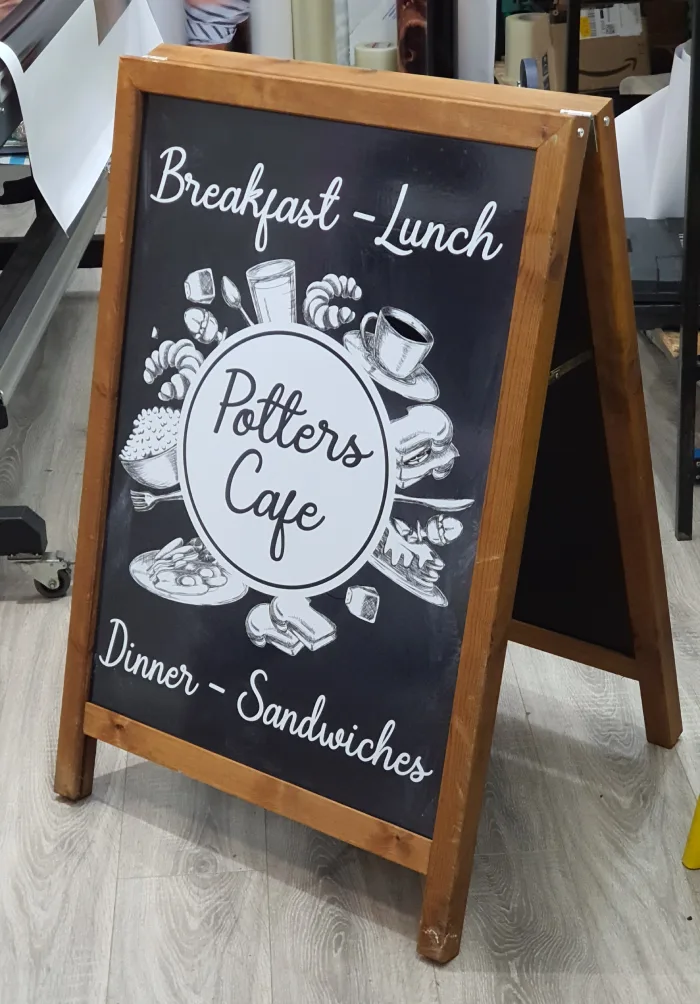 Breakfast - Lunch
Potters
Cafe
Dinner - Sandwiches